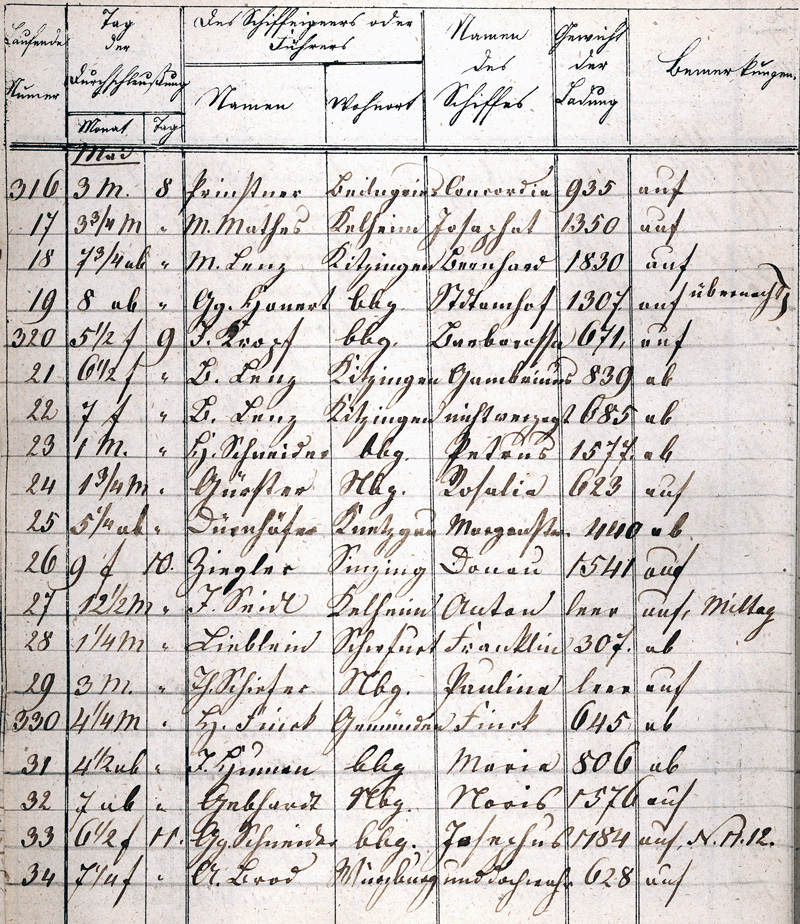 Laufende Numer
Tag der Durchschleußung
Monat Tag
Des Schiffeigners oder Führers
Namen Wohnort
Namen des Schiffes
Gewicht der Ladung
Bemerkungen
Mai
316 3 M. 8 Prinstner Beilngries Concordia 935 auf
17 3 3/4 M " M. Mathes Kelheim Josaphat 1350 auf
18 7 3/4 ab " M. Lenz Kitzingen Bernhard 1830 auf
19 8 ab " Gg. bbg. Stdtamhof 1307. auf übernacht
320 5 1/2 f 9 J. Kropf bbg. Barbarossa 671, auf
21 6 1/2 f " B. Lenz Kitzingen Gambrinus 839 ab
22 7 f " B. Lenz Kitzingen nicht verzagt 685 ab
23 1 M. " H. Schneider bbg. Petrus 1577. ab
24 1 3/4 M. " Gürster Nbg. Rosalia 623 auf
25 5 1/4 ab " Dürnhöfer Knetzgau Morgenstr. 440 ab
26 9 f 10. Ziegler Sinzing Donau 1541 auf
27 12 1/2 M " J. Seidl Kelheim Anton leer auf, Mittag
28 1 1/4 M " Lieblein Schwfurt Franklin 307. ab
29 3 M. " Th. Schiefer Nbg. Paulina leer auf
330 4 1/4 M " H. Finck Gemünden Finck 645 ab
31 4 1/2 ab " J. bbg Maria 806 ab
32 7 ab " Gebhardt Nbg. Noris 1576 auf
33 6 1/2 f 11. Gg. Schneider bbg. Josephus 1784 auf, N. 11. 12.
34 7 1/4 f " A. Brod Würzburg und doch wahr 628 auf